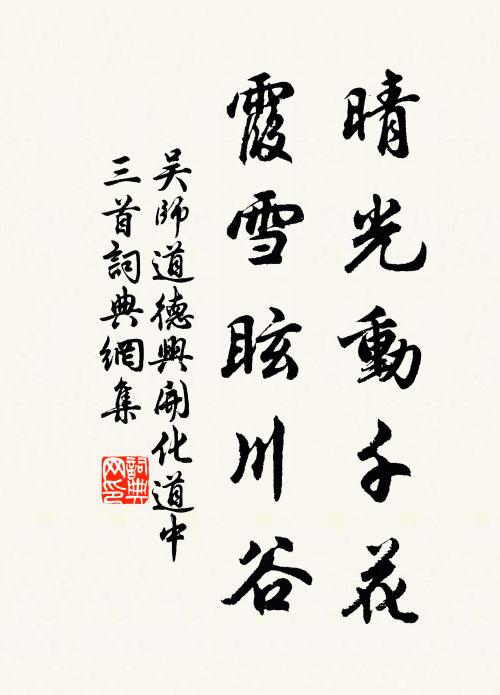 晴光動千花
霞雪眩川谷
吴師道德興開化道中
三首詞典網集
詞典網印